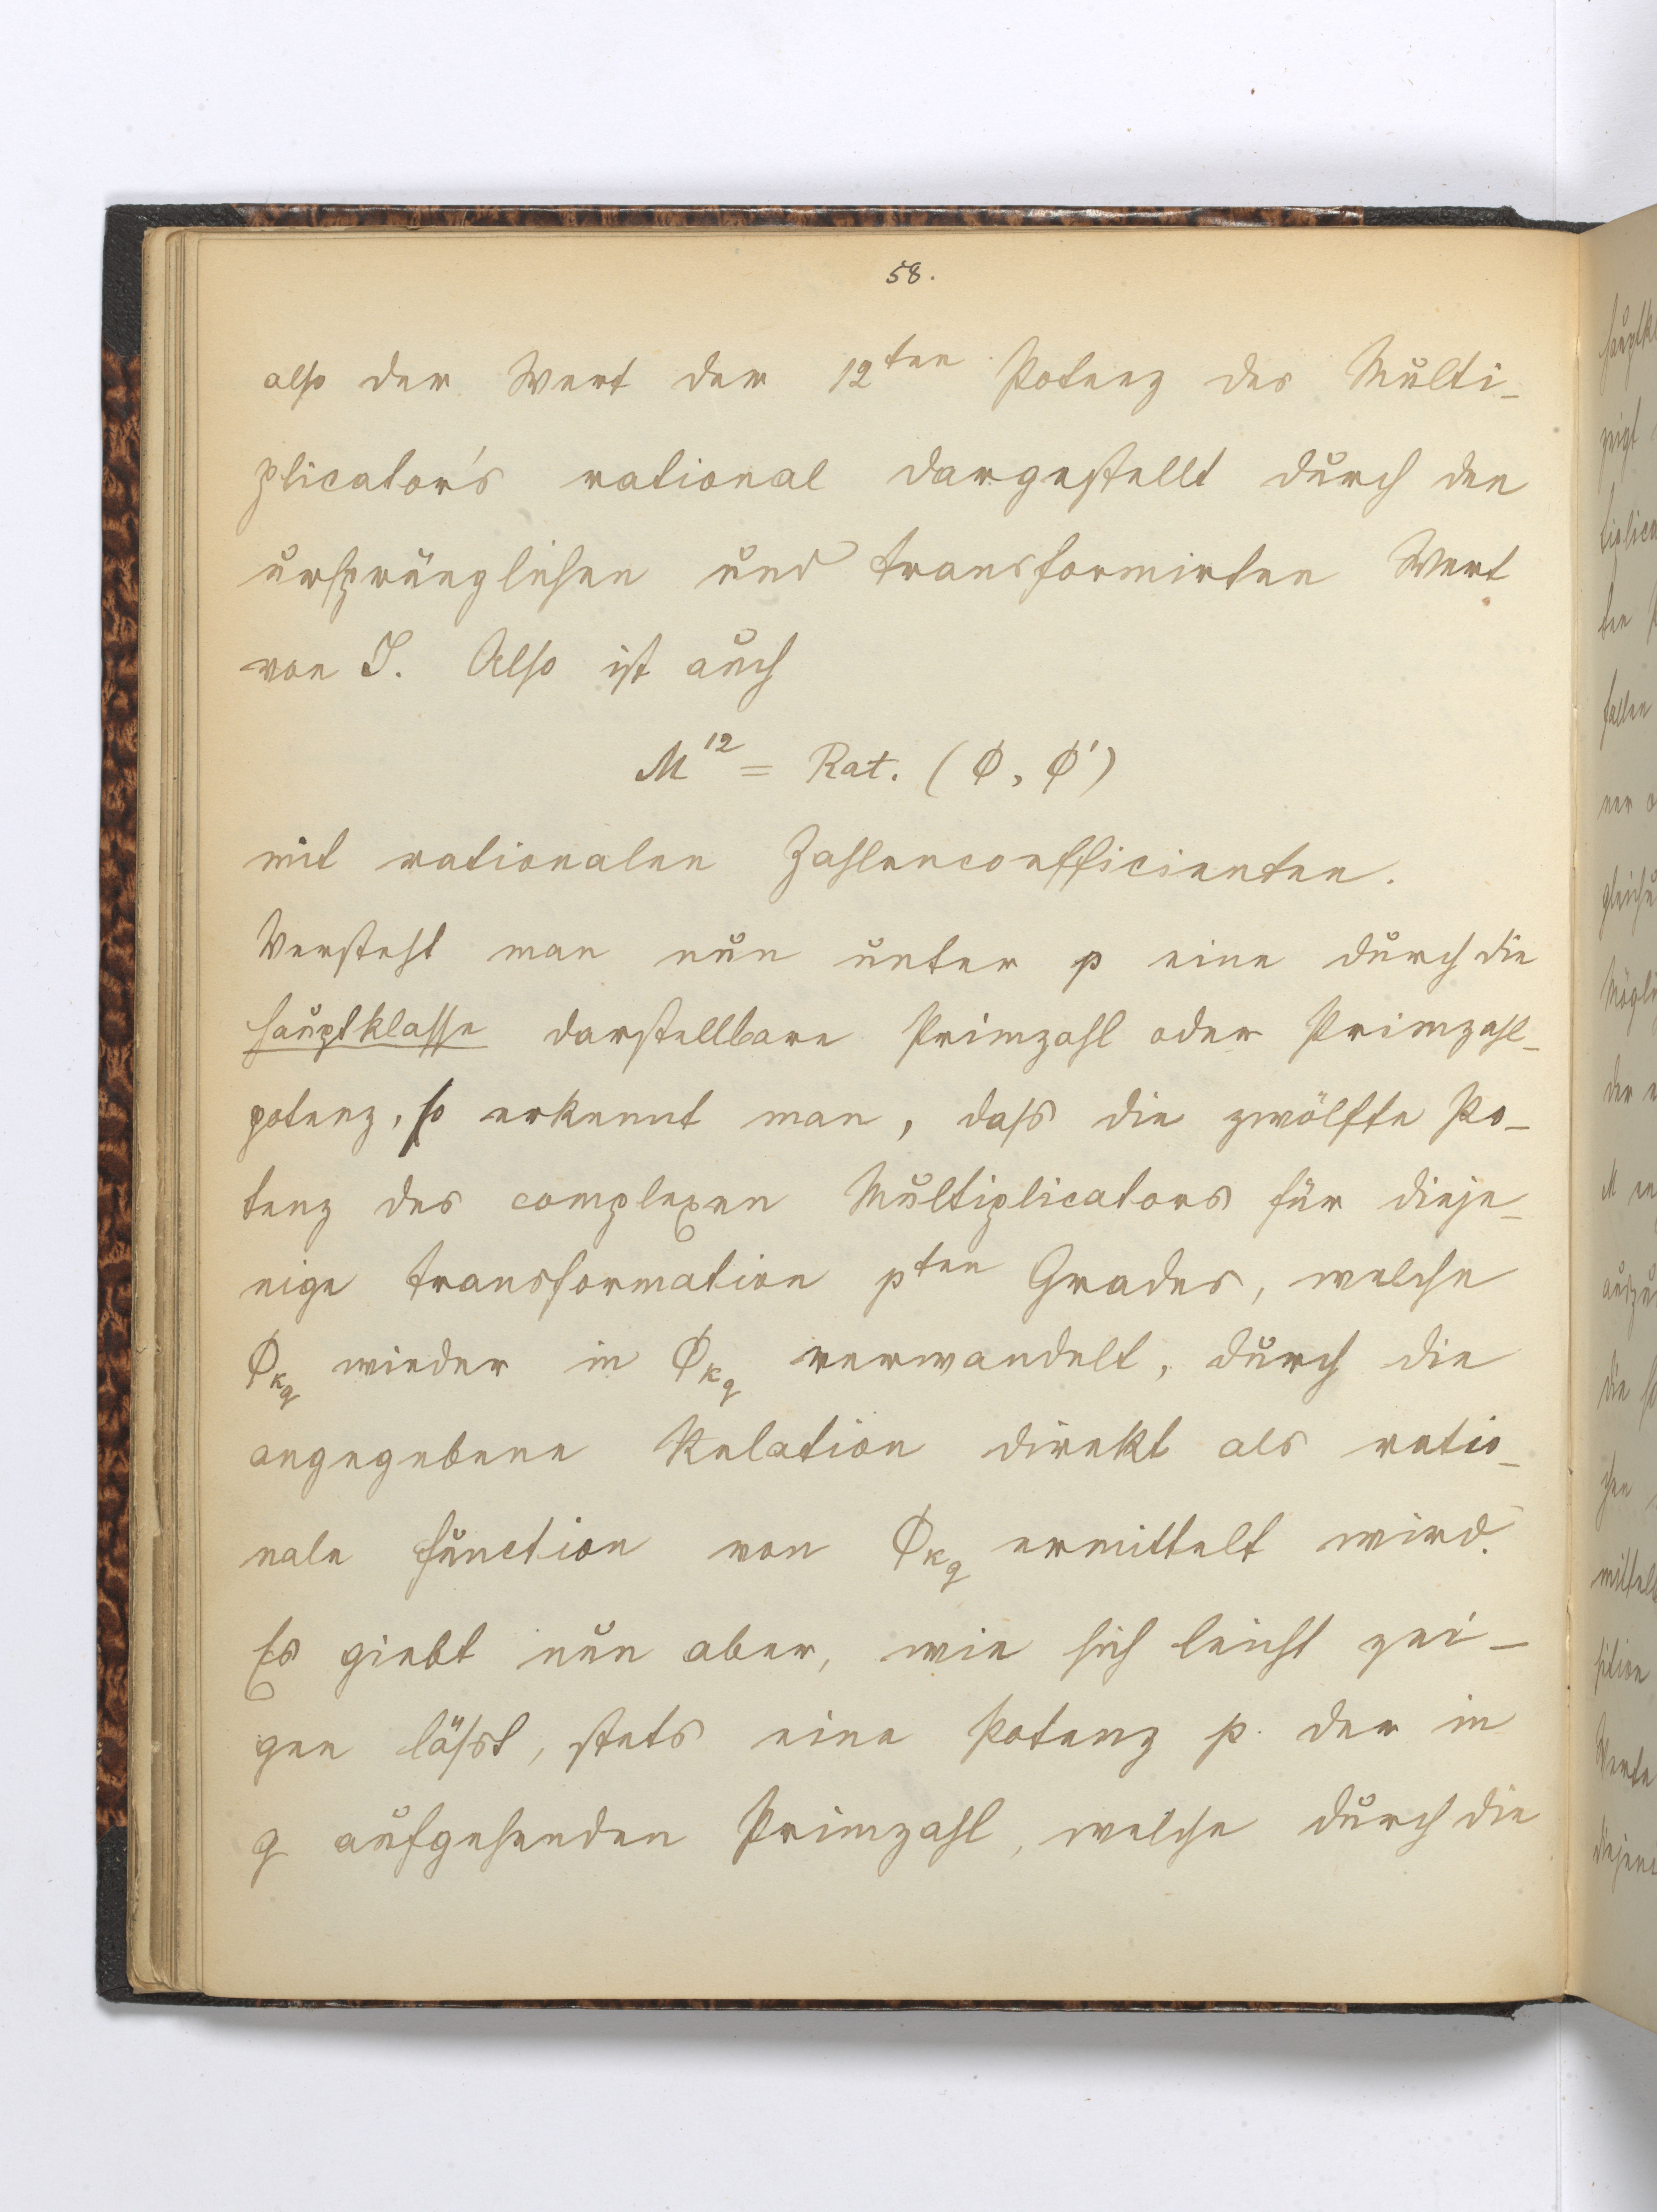 58.
also der Wert der 12ten Potenz des Multi-
plicator's rational dargestellt durch den
ursprünglichen und transformirten Wert
von J. Also ist auch
M¹² = Rat. (ϕ, ϕ')
mit rationalen Zahlencoefficienten.
Versteht man nun unter p eine durch die
Hauptklasse darstellbare Primzahl oder Primzahl-
potenz, so erkennt man, dass die zwölfte Po-
tenz des complexen Multiplicators für dieje-
nige Transformation pten Grades, welche
ϕ_{κ_q} wieder in ϕ_{κ_q} verwandelt, durch die
angegebene Relation direkt als ratio-
nale Function von ϕ_{κ_q} ermittelt wird.
Es giebt nun aber, wie sich leicht zei-
gen lässt, stets eine Potenz p. der in
q aufgehenden Primzahl, welche durch die